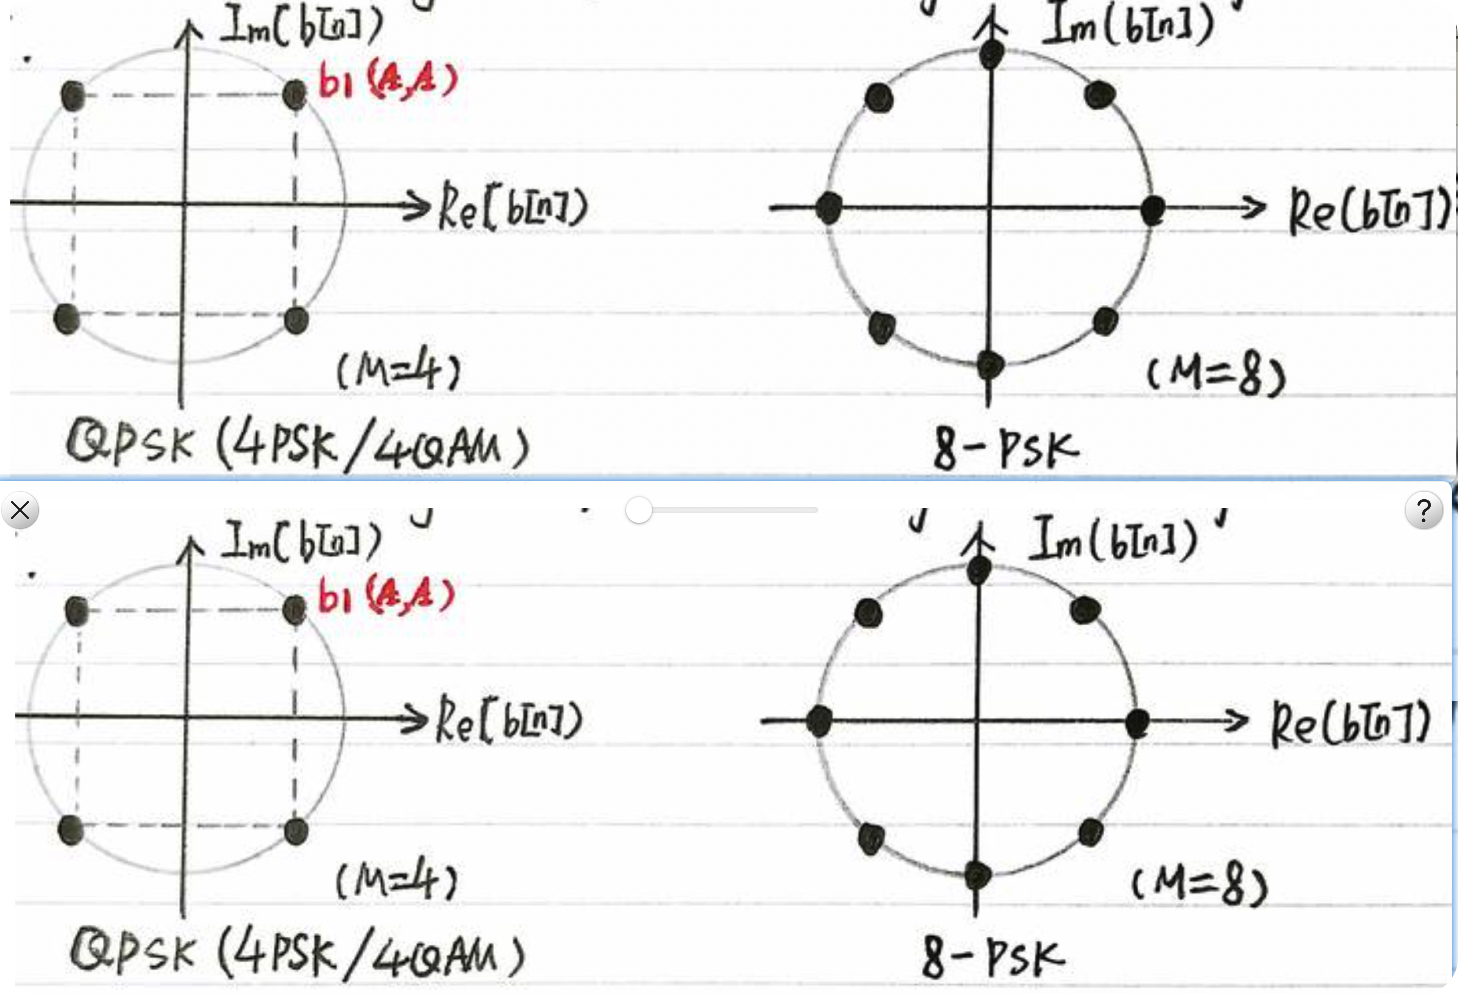 Im(b[n])
b1 (A,A)
Re[b[n])
(M=4)
QPSK (4PSK/4QAM)
Im(b[n])
Re(b[n])
(M=8)
8-PSK
?
Im(b[n])
b1 (A,A)
Re[b[n])
(M=4)
QPSK (4PSK/4QAM)
Im(b[n])
Re(b[n])
(M=8)
8-PSK